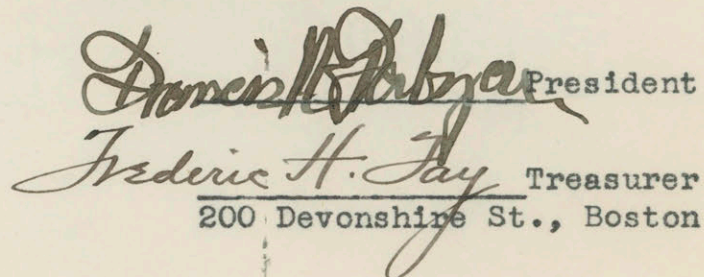 Francis President
Frederic H. Fay Treasurer
200 Devonshire St., Boston